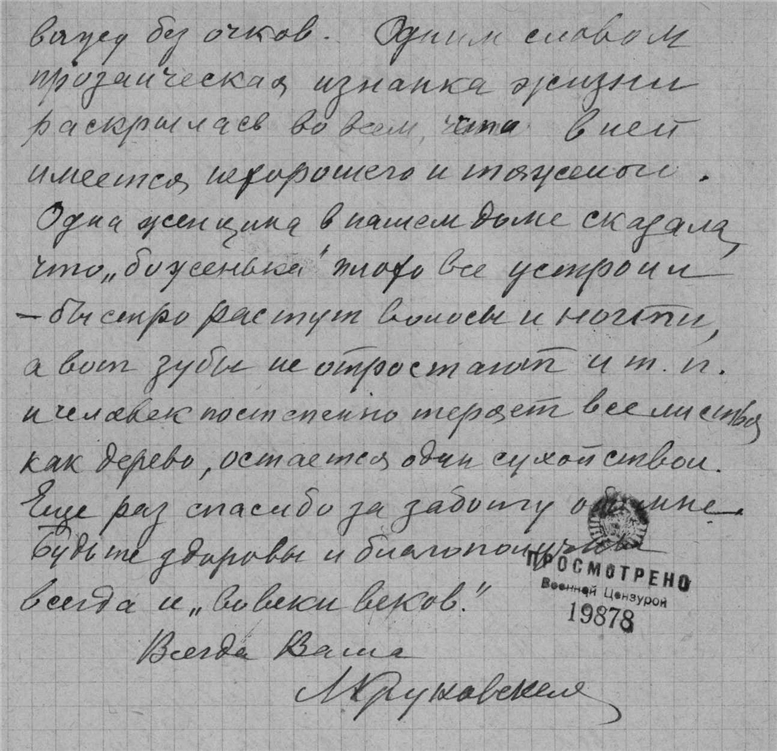 без очков. Одним словом
прозаическая изнанка жизни
раскрылась во всем, что в ней
имеется нехорошего и тяжелого.
Одна женщина в нашем доме сказала,
что „боженька" плохо все устроил
– быстро растут волосы и ногти,
а вот зубы не отростают и т. п.
и человек постепенно теряет все листья
как дерево, остается один сухой ствол.
Еще раз спасибо за заботу обо мне.
Будьте здоровы и благополучны
всегда и „во веки веков."
Всегда Ваша
ПРОСМОТРЕНО
Военной Цензурой
19878